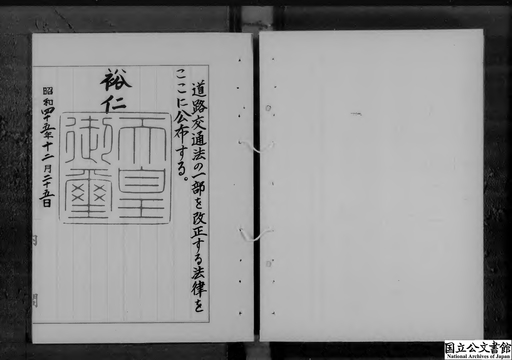 道路交通法の一部を改正する法律を
ここに公布する。
裕仁
天皇
御璽
昭和四十五年十二月二十五日
内
閣
国立公文書館
National Archives of Japan